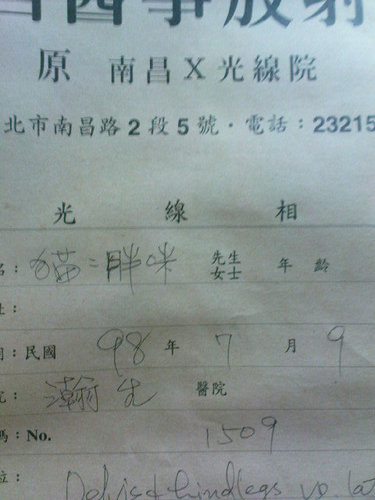 原 南昌X光線院
北市南昌路2段5號・電話:23215
光 線 相
名: 貓:胖咪 先生 女士 年 齡
:
: 民國 98 年 7 月 9
: 瀚生 醫院
碼: No. 1509
位: Pelvis & hindlegs VD lat